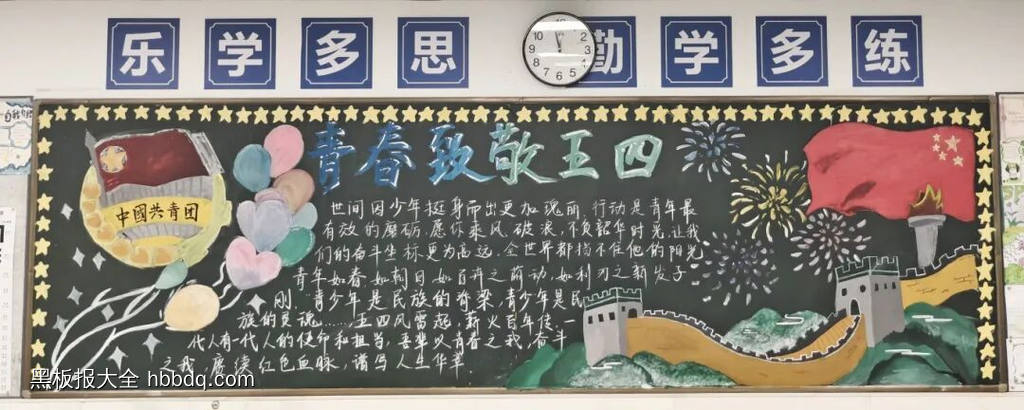 乐学多思 勤学多练
青春致敬王四
中國共青团
世间因少年挺身而出更加瑰丽,行动是青年最
有效的磨砺,愿你乘风破浪,不负韶华时光,让我
们的奋斗坐标更为高远.全世界都挡不住他的阳光
青年如春,如朝日,如百卉之萌动,如利刃之新发于
刚."青少年是民族的脊梁,青少年是民
族的灵魂……五四风雷起,薪火百年传,一
代人有一代人的使命和担当,吾辈以青春之我,奋斗
之我,赓续红色血脉,谱写人生华章
黑板报大全 hbbdq.com